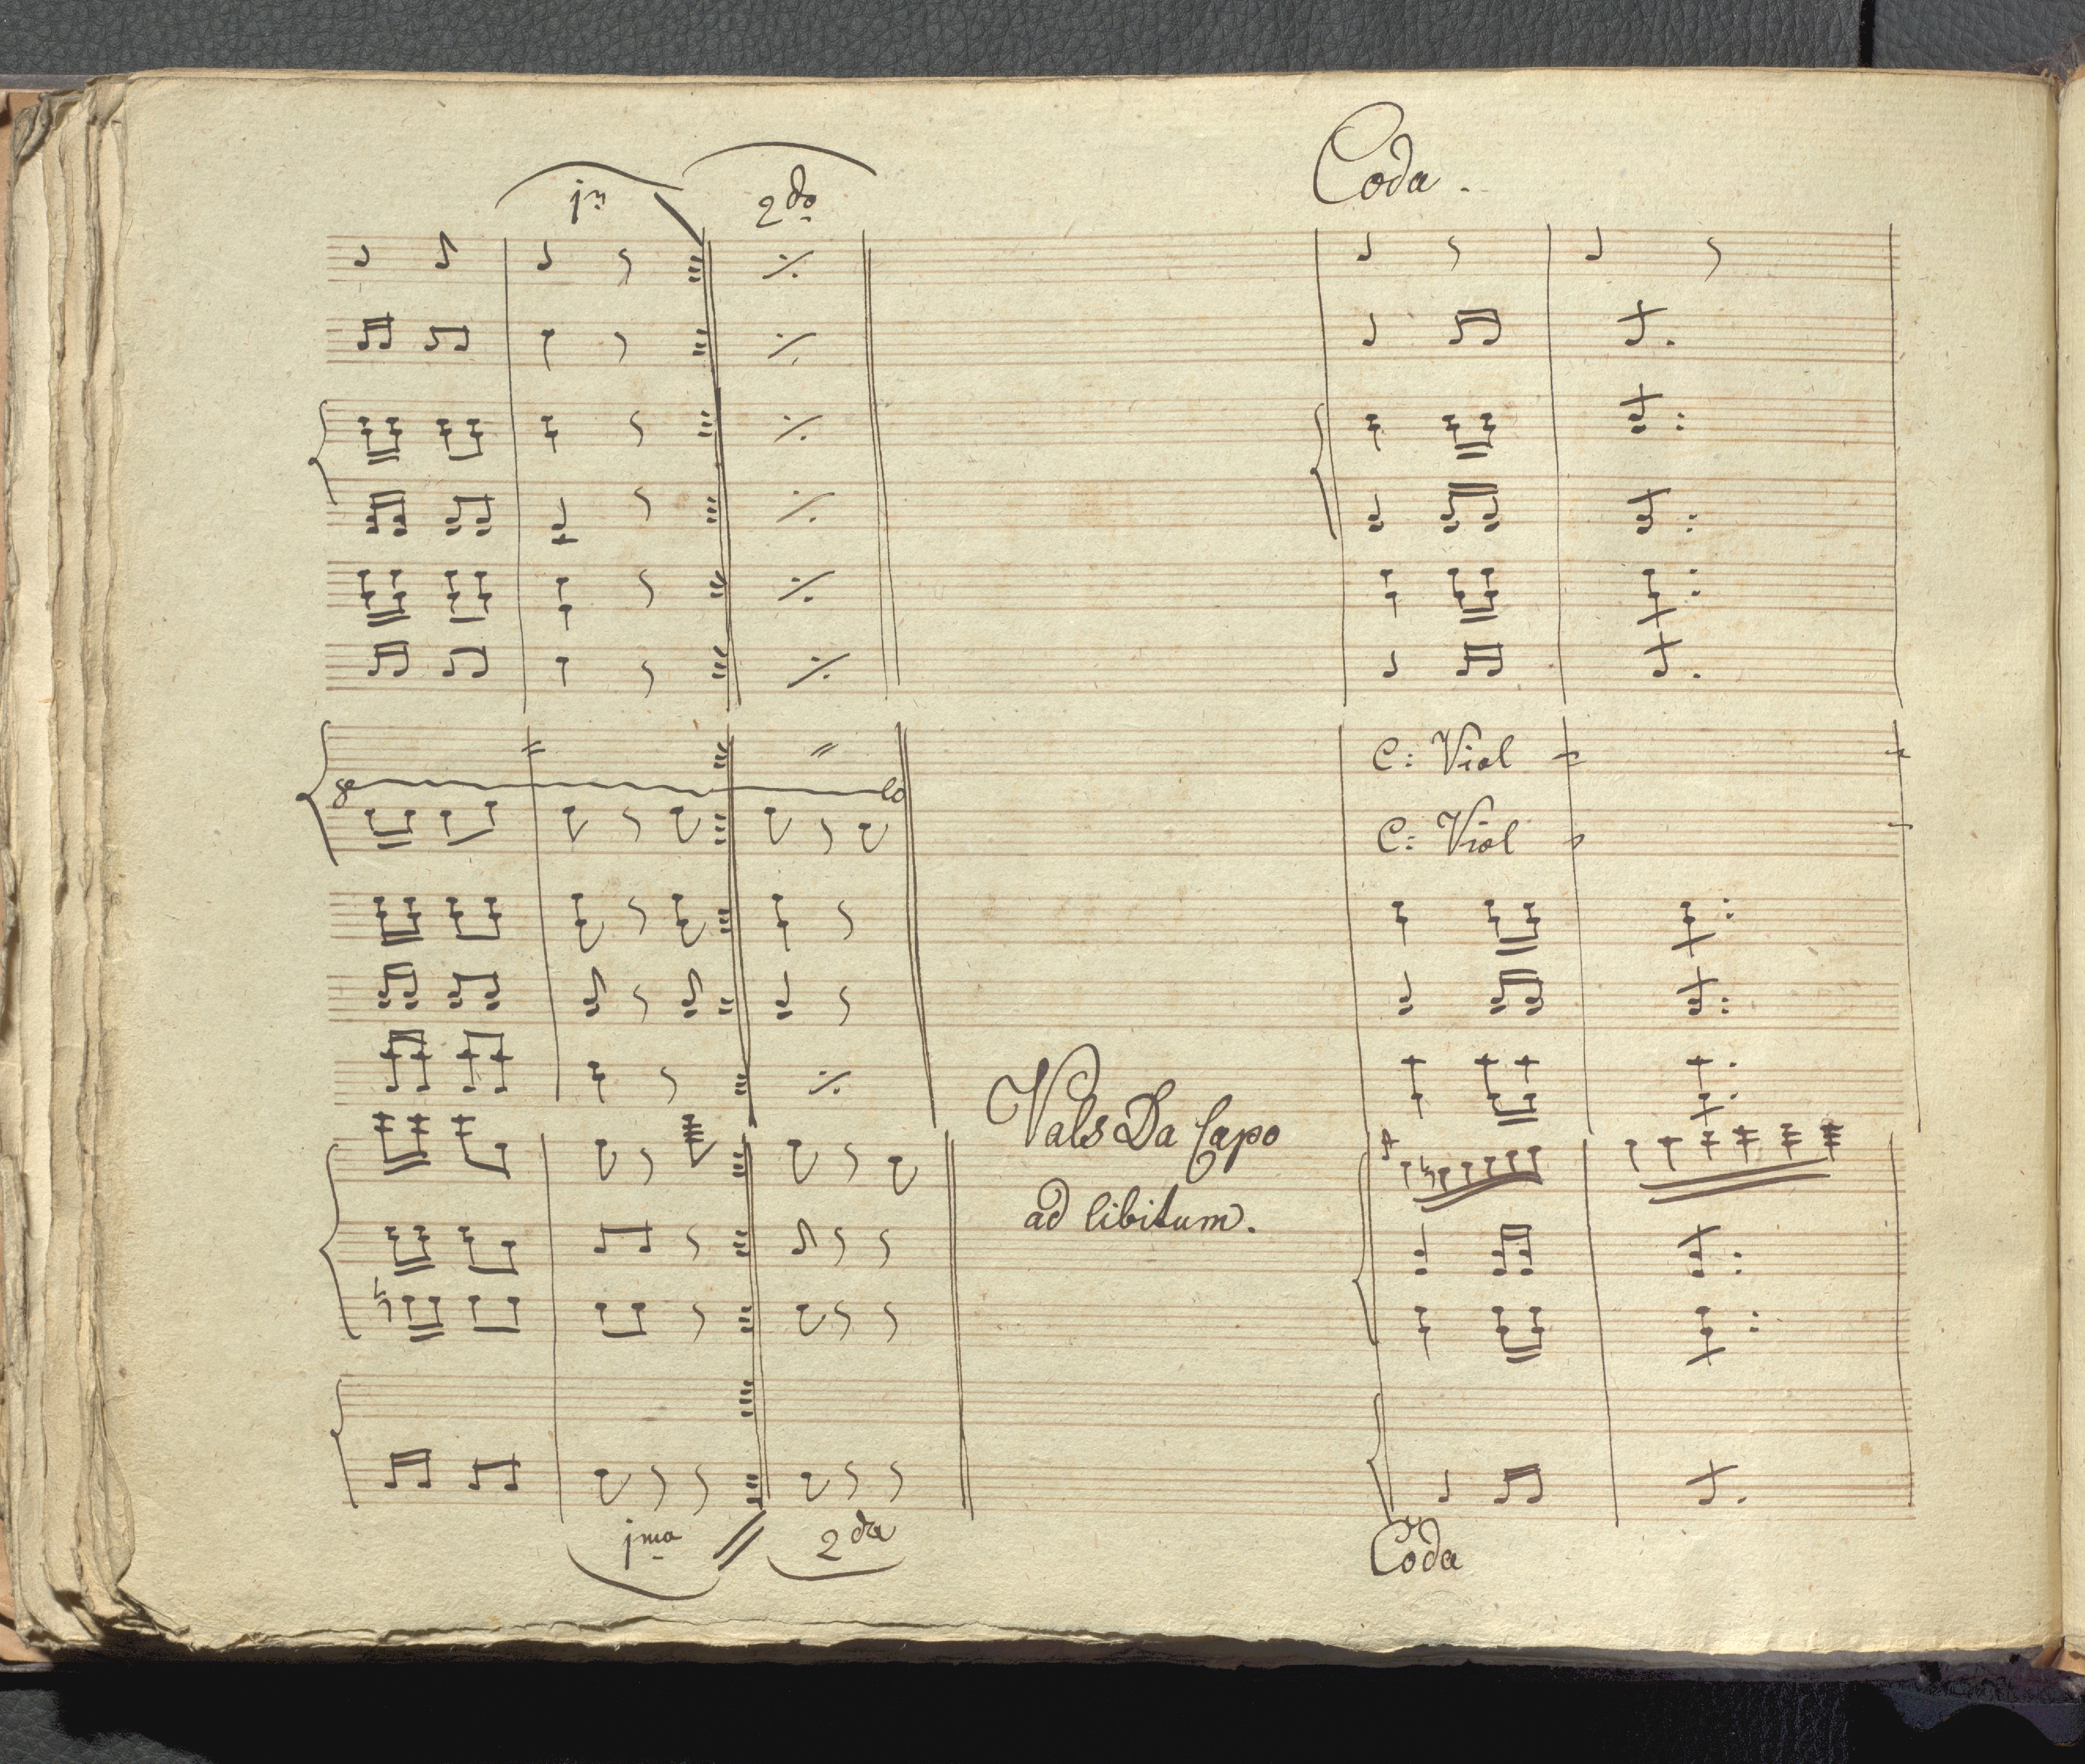 Coda.
1m 2do
8e lo
C: Viol
C: Viol
Vals Da Capo
ad libitum.
1ma 2da
Coda